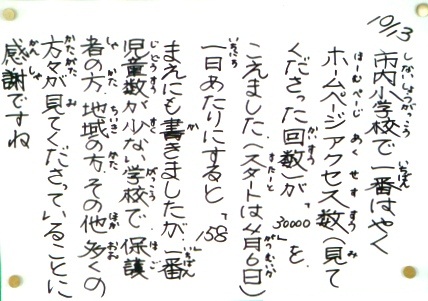 10/13
市内小学校で一番はやく
ホームページアクセス数(見て
くださった回数)が「30000」を
こえました(スタートは4月6日)
一日あたりにすると「158」
まえにも書きましたが、一番
児童数が少ない学校で保護
者の方、地域の方、その他多くの
方々が見てくださっていることに
感謝ですね